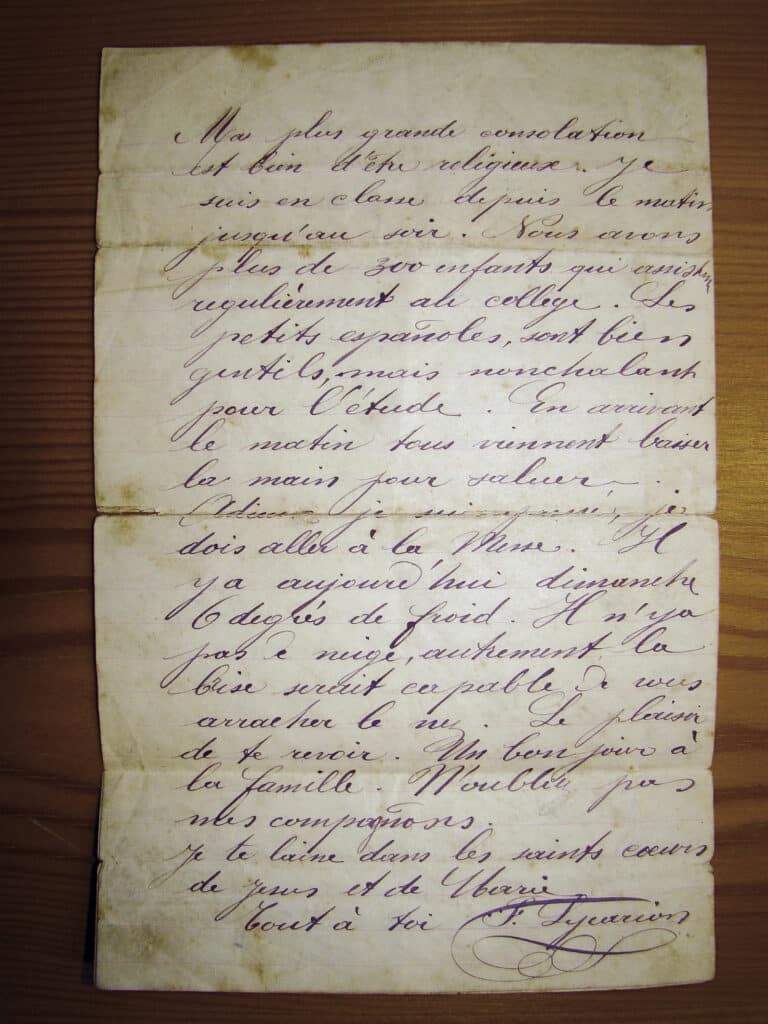 Ma plus grande consolation
est bien d'être religieux. Je
suis en classe depuis le matin
jusqu'au soir. Nous avons
plus de 300 enfants qui assistent
regulièrement au collège. Les
petits españoles, sont bien
gentils, mais nonchalant
pour l'étude. En arrivant
le matin tous viennent baiser
la main pour saluer.
je suis pressé, je
dois aller à la Messe. Il
y a aujourd'hui dimanche
6 degrés de froid. Il n'y a
pas de neige, autrement la
bise serait capable de vous
arracher le nez. Le plaisir
de te revoir. Un bon jour à
la famille. N'oublie pas
mes compañons.
Je te laisse dans les saints coeurs
de Jesus et de Marie
Tout à toi F.